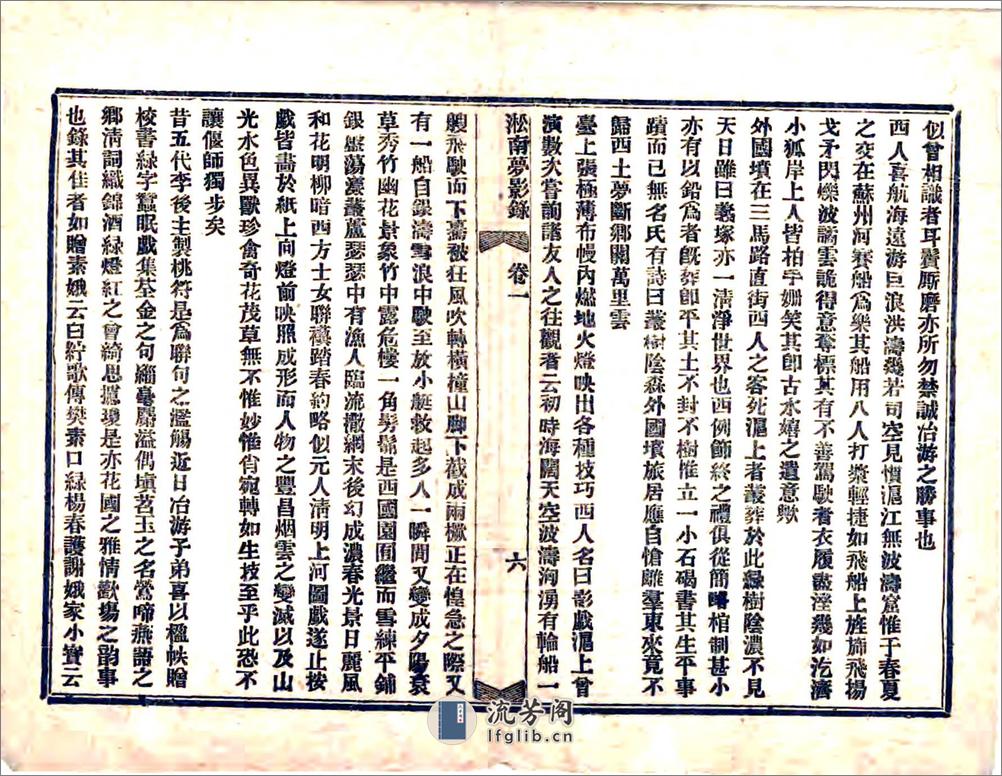 似曾相識者耳鬢厮磨亦所勿禁誠冶游之勝事也
西人喜航海遠游巨浪洪濤幾若司空見慣滬江無波濤窟惟于春夏
之交在蘇州河賽船爲樂其船用八人打槳輕捷如飛船上旌旆飛揚
戈矛閃爍波譎雲詭得意奪標其有不善駕駛者衣履盡溼幾如汔濟
小狐岸上人皆拍手姍笑其卽古水嬉之遺意歟
外國墳在三馬路直街西人之客死滬上者叢葬於此綠樹陰濃不見
天日雖曰義塚亦一淸淨世界也西例飾終之禮俱從簡略棺制甚小
亦有以鉛爲者旣葬卽平其土不封不樹惟立一小石碣書其生平事
蹟而已無名氏有詩曰叢樹陰森外國墳旅居應自愴離羣東來竟不
歸西土夢斷鄉關萬里雲
臺上張極薄布幔內燃地火燈映出各種技巧西人名曰影戲滬上曾
演數次嘗詢諸友人之往觀者云初時海闊天空波濤洶湧有輪船一
淞南夢影錄
卷一
六
艘飛駛而下驀被狂風吹轉橫撞山脚下截成兩橛正在惶急之際又
有一船自銀濤雪浪中駛至放小艇救起多人一瞬間又變成夕陽衰
草秀竹幽花景象竹中露危樓一角髣髴是西國園囿繼而雪練平鋪
銀盤蕩漾叢蘆瑟瑟中有漁人臨流撒網末後幻成濃春光景日麗風
和花明柳暗西方士女聯襼踏春約略似元人淸明上河圖戲遂止按
戲皆畵於紙上向燈前映照成形而人物之豐昌烟雲之變滅以及山
光水色異獸珍禽奇花茂草無不惟妙惟肖宛轉如生技至乎此恐不
讓偃師獨步矣
昔五代李後主製桃符是爲聯句之濫觴近日冶游子弟喜以楹帖贈
校書綠字蠶眠戲集荃金之句緗毫麝溢偶塡茗玉之名鶯啼燕語之
鄉淸詞纖錦酒綠燈紅之會綺思攄瓊是亦花國之雅情歡場之韵事
也錄其佳者如贈素娥云白紵歌傳樊素口綠楊春護謝娥家小寶云
流芳阁
lfglib.cn